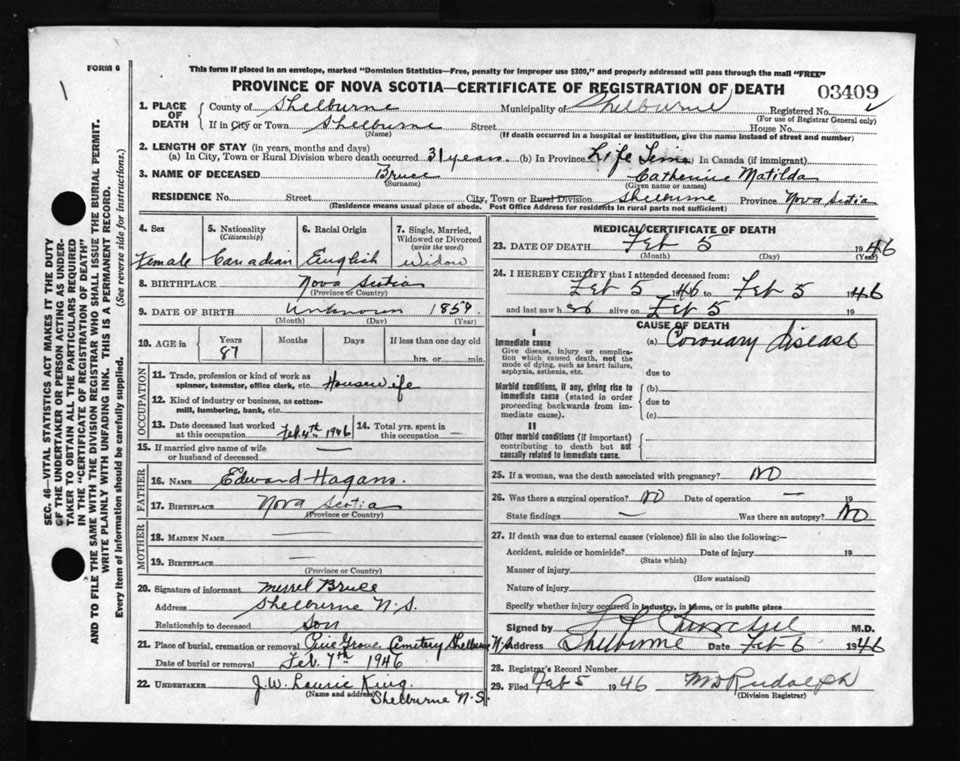 FORM 6
This form if placed in an envelope, marked "Dominion Statistics—Free, penalty for improper use $300," and properly addressed will pass through the mail "FREE"
PROVINCE OF NOVA SCOTIA—CERTIFICATE OF REGISTRATION OF DEATH
03409
1. PLACE OF DEATH
County of Shelburne Municipality of Shelburne Registered No.
(For use of Registrar General only)
If in City or Town Shelburne Street House No.
(Name) (If death occurred in a hospital or institution, give the name instead of street and number)
2. LENGTH OF STAY (in years, months and days)
(a) In City, Town or Rural Division where death occurred 31 years. (b) In Province Life Time (c) In Canada (if immigrant)
3. NAME OF DECEASED Bruce Catherine Matilda
(Surname) (Given name or names)
RESIDENCE No. Street City, Town or Rural Division Shelburne Province Nova Scotia
(Residence means usual place of abode. Post Office Address for residents in rural parts not sufficient)
4. Sex
Female
5. Nationality
(Citizenship)
Canadian
6. Racial Origin
English
7. Single, Married,
Widowed or Divorced
(write the word)
Widow
8. BIRTHPLACE Nova Scotia
(Province or Country)
9. DATE OF BIRTH Unknown 1859
(Month) (Day) (Year)
10. AGE in
Years Months Days If less than one day old
87 hrs. or min.
OCCUPATION
11. Trade, profession or kind of work as
spinner, teamster, office clerk, etc. Housewife
12. Kind of industry or business, as cotton-
mill, lumbering, bank, etc.
13. Date deceased last worked
at this occupation Feb. 4th 1946
14. Total yrs. spent in
this occupation —
15. If married give name of wife
or husband of deceased —
FATHER
16. NAME Edward Hagans.
17. BIRTHPLACE Nova Scotia
(Province or Country)
MOTHER
18. MAIDEN NAME —
19. BIRTHPLACE —
(Province or Country)
20. Signature of informant Merrel Bruce
Address Shelburne N.S.
Relationship to deceased Son
21. Place of burial, cremation or removal Pine Grove Cemetery Shelburne N.S.
Date of burial or removal Feb. 7th 1946
22. UNDERTAKER J.W. Lowrie King.
(Name and address) Shelburne N.S.
MEDICAL CERTIFICATE OF DEATH
23. DATE OF DEATH Feb 5 1946
(Month) (Day) (Year)
24. I HEREBY CERTIFY that I attended deceased from:
Feb 5 1946 to Feb 5 1946
and last saw h alive on Feb 5 19
CAUSE OF DEATH
I
Immediate cause
Give disease, injury or complica-
tion which caused death, not the
mode of dying, such as heart failure,
asphyxia, asthenia, etc.
(a) Coronary disease
due to
Morbid conditions, if any, giving rise to
immediate cause (stated in order
proceeding backwards from im-
mediate cause).
(b)
due to
(c)
II
Other morbid conditions (if important)
contributing to death but not
causally related to immediate cause.
25. If a woman, was the death associated with pregnancy? NO
26. Was there a surgical operation? NO Date of operation — 19
State findings — Was there an autopsy? NO
27. If death was due to external causes (violence) fill in also the following:—
Accident, suicide or homicide? Date of injury 19
(State which)
Manner of injury
(How sustained)
Nature of injury
Specify whether injury occurred in industry, in home, or in public place
Signed by M.D.
Address Shelburne Date Feb 6 1946
28. Registrar's Record Number
29. Filed Feb 5 1946 M D Rudolph
(Division Registrar)
SEC. 46—VITAL STATISTICS ACT MAKES IT THE DUTY
OF THE UNDERTAKER OR PERSON ACTING AS UNDER-
TAKER TO OBTAIN ALL THE PARTICULARS REQUIRED
IN THE "CERTIFICATE OF REGISTRATION OF DEATH"
AND TO FILE THE SAME WITH THE DIVISION REGISTRAR WHO SHALL ISSUE THE BURIAL PERMIT.
WRITE PLAINLY WITH UNFADING INK. THIS IS A PERMANENT RECORD.
Every item of information should be carefully supplied. (See reverse side for instructions.)